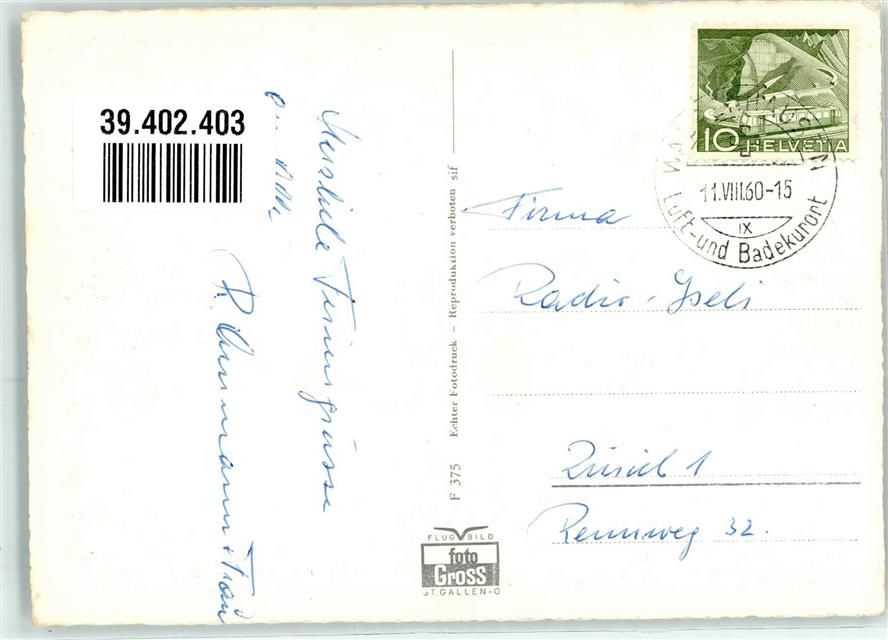 39.402.403
Herzliche Feriengrüsse
R.
Echter Fotodruck – Reproduktion verboten sif
F 375
FLUGBILD
foto
GROSS
ST. GALLEN-O
10 HELVETIA
11.VIII.60-15
IX
Luft- und Badekurort
Firma
Radio-Iseli
Zürich 1
Rennweg 32.